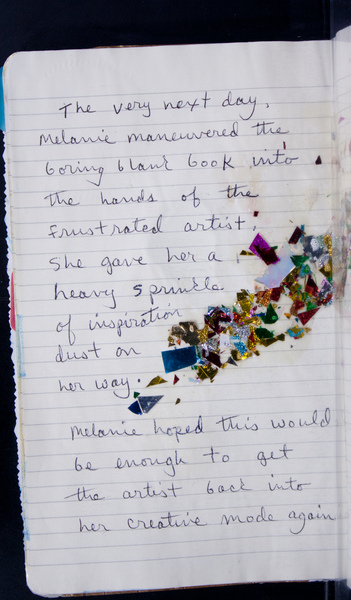 The very next day,
Melanie maneuvered the
boring blank book into
the hands of the
frustrated artist.
She gave her a
heavy sprinkle
of inspiration
dust on
her way.
Melanie hoped this would
be enough to get
the artist back into
her creative mode again